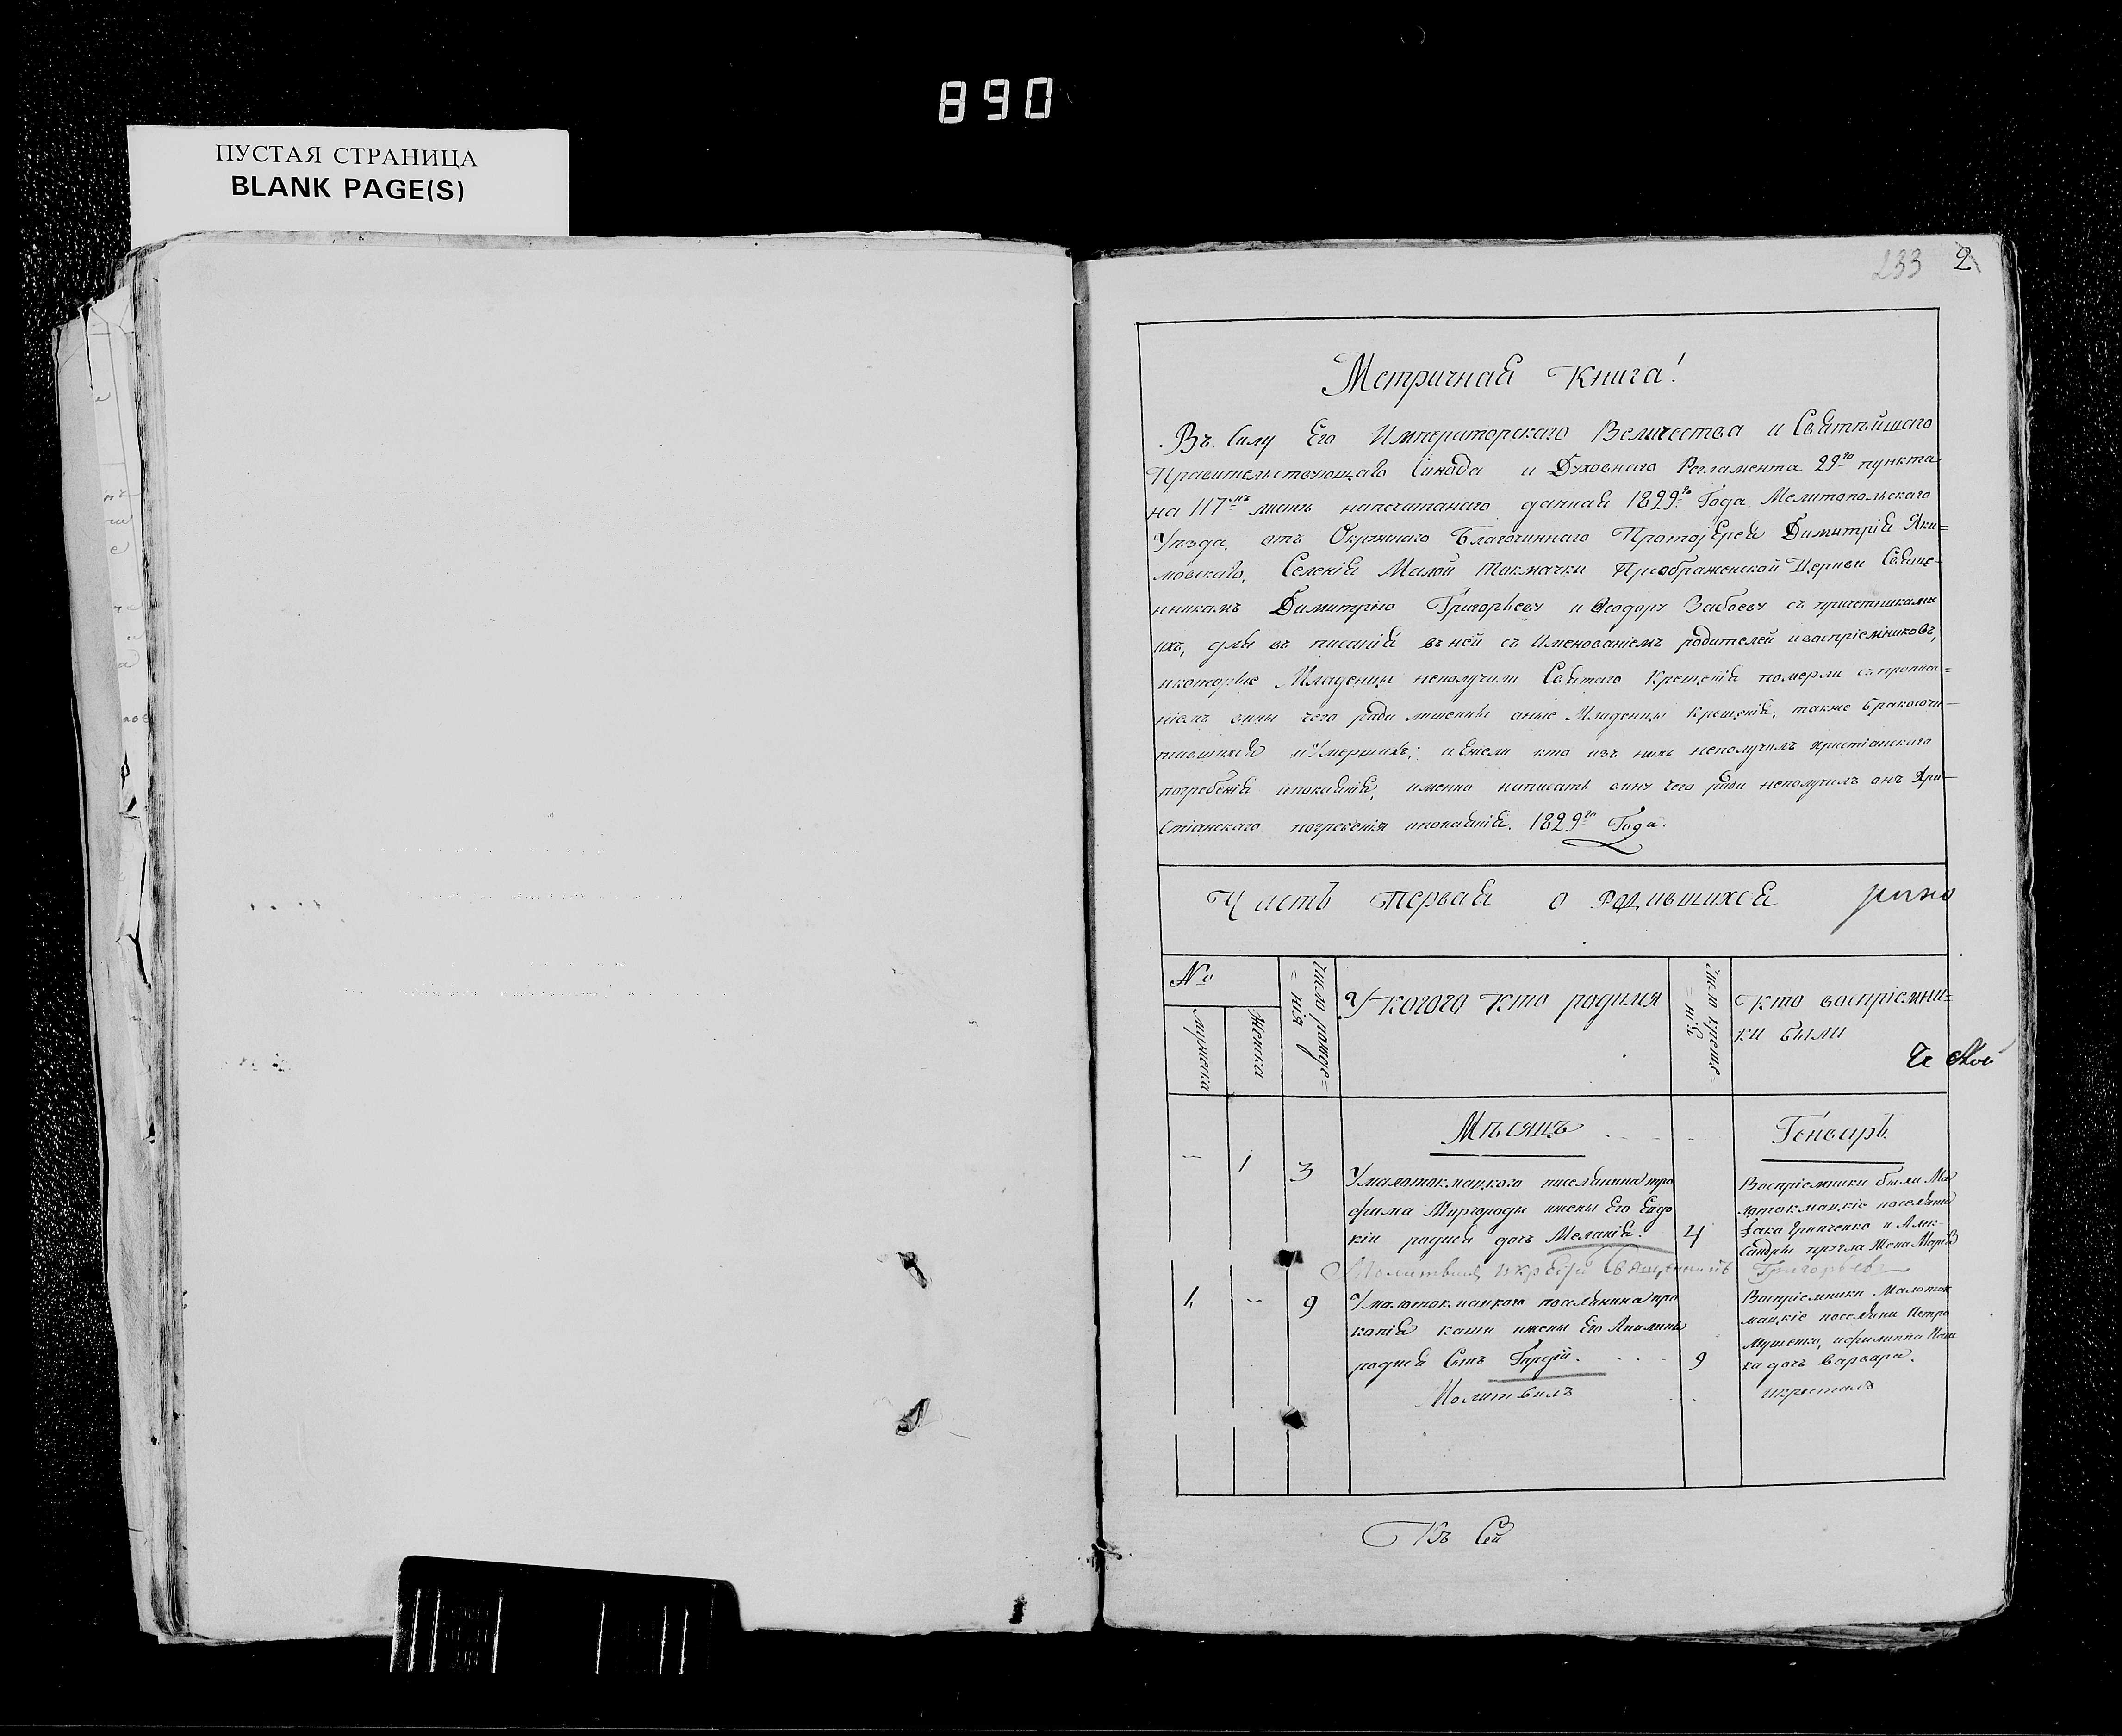 890
ПУСТАЯ СТРАНИЦА
BLANK PAGE(S)
233 2
Метричная Книга!
Въ Силу Его Императорскаго Величества и Святѣйшаго
Правительствующаго Синода и Духовнаго Регламента 29го пункта
на 117мъ листѣ напечатанаго данная 1829го Года Мелитопольскаго
Уѣзда, отъ Окружнаго Благочиннаго Протоіерея Димитрія Яки=
мовскаго, Селенія Малой токмачки Преображенской Церкви Священ-
никамъ Димитрію Григорьеву и Ѳеодору Забаеву съ причетниками
ихъ, для въ писанія въ ней съ Именованіемъ родителей и воспріемниковъ,
и которые Младенцы неполучили Святаго Крещенія померли съ прописа=
ніемъ вины чего ради лишенны оные Младенцы Крещенія, также бракосочи-
тавшихся и Умершихъ; и Ежели кто изъ нихъ неполучилъ христіанского
погребенія и покаянія, именно написать вину чего ради неполучилъ онъ Хри-
стіанскаго погребенія и покаянія. 1829го Года.
Часть первая о родившихся
№
мужеска
Женска
Число рожде=
= нія
У кого кто родился
Число креще=
= нія
Кто воспріемни=
ки были
Мѣсяцъ Генварь
- 1 3
У малотокмацкого поселянина тро
фима Миргороды и жены Его Евдо
кіи родися дочь Меланія. 4
Воспріемники были Мал
лотокмацкіе поселяне
Григоренко и Алек
сандры жена Марія
Молитвилъ и крестилъ Священникъ Григорьевъ
1 - 9
У малотокмацкого поселянина про
копія каши и жены Его Акилины
родися Сынъ Гордій. 9
Воспріемники Малоток
мацкіе поселяне Петро
и филиппа
ка дочь варвара.
Молитвилъ и крестилъ
Къ Сей